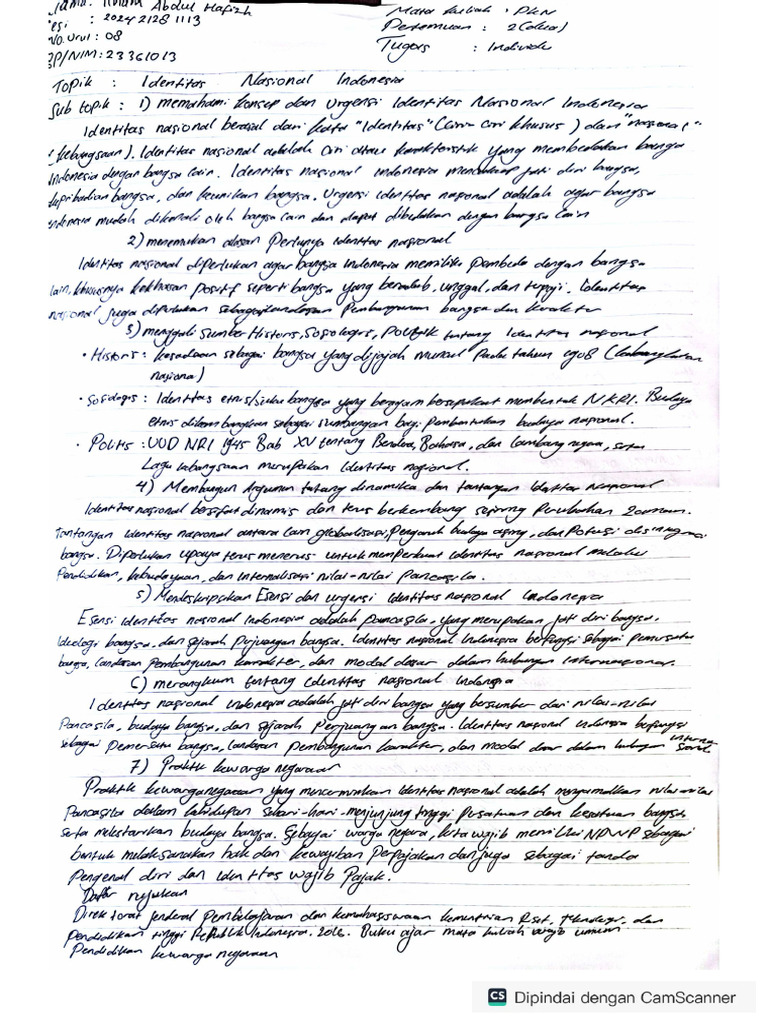 Nama: Abdul Hafizh
Sesi : 202421281113
No. Urut : 08
BP/NIM : 23361013
Mata kuliah : PKN
Pertemuan : 2 (dua)
Tugas : Individu
Topik : Identitas Nasional Indonesia
Sub topik : 1) memahami konsep dan urgensi Identitas Nasional Indonesia
Identitas nasional berasal dari kata "Identitas" (ciri-ciri khusus) dan "nasional"
(kebangsaan). Identitas nasional adalah ciri atau karakteristik yang membedakan bangsa
Indonesia dengan bangsa lain. Identitas nasional indonesia mencakup jati diri bangsa,
kepribadian bangsa, dan keunikan bangsa. Urgensi identitas nasional adalah agar bangsa
indonesia mudah dikenali oleh bangsa lain dan dapat dibedakan dengan bangsa lain
2) menemukan alasan Perlunya identitas nasional
Identitas nasional diperlukan agar bangsa Indonesia memiliki Pembeda dengan bangsa
lain, khususnya kekhasan positif seperti bangsa yang beradab, unggul, dan terpuji. Identitas
nasional juga diperlukan sebagai landasan Pembangunan bangsa dan karakter
3) menggali sumber Historis, Sosiologis, Politik tentang Identitas nasional
• Historis : kesadaran sebagai bangsa yang dijajah muncul Pada tahun 1908 (kebangkitan
nasional)
• Sosiologis : Identitas etnis/suku bangsa yang beragam bersepakat membentuk NKRI. Budaya
etnis dikembangkan sebagai sumbangan bagi pembentukan budaya nasional.
• Politis : UUD NRI 1945 Bab XV tentang Bendera, Bahasa, dan Lambang negara, serta
Lagu kebangsaan merupakan Identitas nasional.
4) Membangun Argumen tentang dinamika dan tantangan Identitas Nasional
Identitas nasional bersifat dinamis dan terus berkembang seiring Perubahan zaman.
Tantangan identitas nasional antara lain globalisasi, Pengaruh budaya asing, dan Potensi disintegrasi
bangsa. Diperlukan upaya terus menerus untuk memperkuat identitas nasional melalui
Pendidikan, kebudayaan, dan Internalisasi nilai-nilai Pancasila.
5) Mendeskripsikan Esensi dan urgensi identitas nasional indonesia
Esensi identitas nasional Indonesia adalah pancasila, yang merupakan jati diri bangsa,
ideologi bangsa, dan sejarah perjuangan bangsa. Identitas nasional Indonesia berfungsi sebagai pemersatu
bangsa, landasan Pembangunan karakter, dan modal dasar dalam hubungan internasional.
6) merangkum tentang Identitas nasional Indonesia
Identitas nasional indonesia adalah jati diri bangsa yang bersumber dari nilai-nilai
Pancasila, budaya bangsa, dan sejarah Perjuangan bangsa. Identitas nasional indonesia berfungsi
sebagai Pemersatu bangsa, landasan Pembangunan karakter, dan modal dasar dalam hubungan internasional.
7) Praktik kewarganegaraan
Praktik kewarganegaraan yang mencerminkan identitas nasional adalah mengamalkan nilai-nilai
Pancasila dalam kehidupan sehari-hari - menjunjung tinggi persatuan dan kesatuan bangsa
serta melestarikan budaya bangsa. Sebagai warga negara, kita wajib memiliki NPWP sebagai
bentuk melaksanakan hak dan kewajiban Perpajakan dan juga sebagai tanda
Pengenal diri dan identitas wajib Pajak.
Daftar rujukan
Direktorat jenderal Pembelajaran dan kemahasiswaan kementrian Riset, Teknologi, dan
pendidikan tinggi Republik Indonesia. 2016. Buku ajar mata kuliah wajib umum
Pendidikan kewarga negaraan
CS Dipindai dengan CamScanner